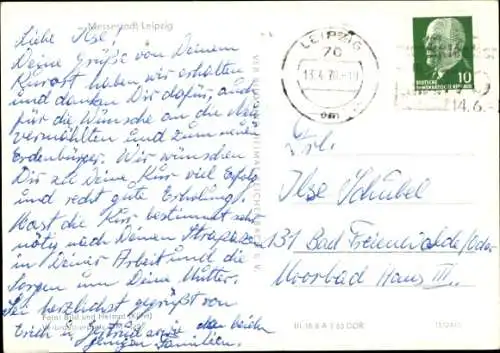 Messestadt Leipzig
Liebe Ilse!
Deine Grüße von Deinem
Kurort haben wir erhalten
und danken Dir dafür, auch
für die Wünsche an die Neu-
vermählten und zum neuen
Erdenbürger. Wir wünschen
Dir zu Deine Kur viel Erfolg
und recht gute Erholung!
Hast die Kur bestimmt sehr
nötig nach Deinem
in Deiner Arbeit und die
Sorgen um Deine Mutter.
Sei herzlichst gegrüßt von
Erich u. sowie den beiden
jungen Familien.
Foto: Bild und Heimat
LEIPZIG
70
DEUTSCHE
DEMOKRATISCHE REPUBLIK
10
14.6.
Frl.
Ilse Schubel
131 Bad Freienwalde/Oder
Moorbad Haus III.